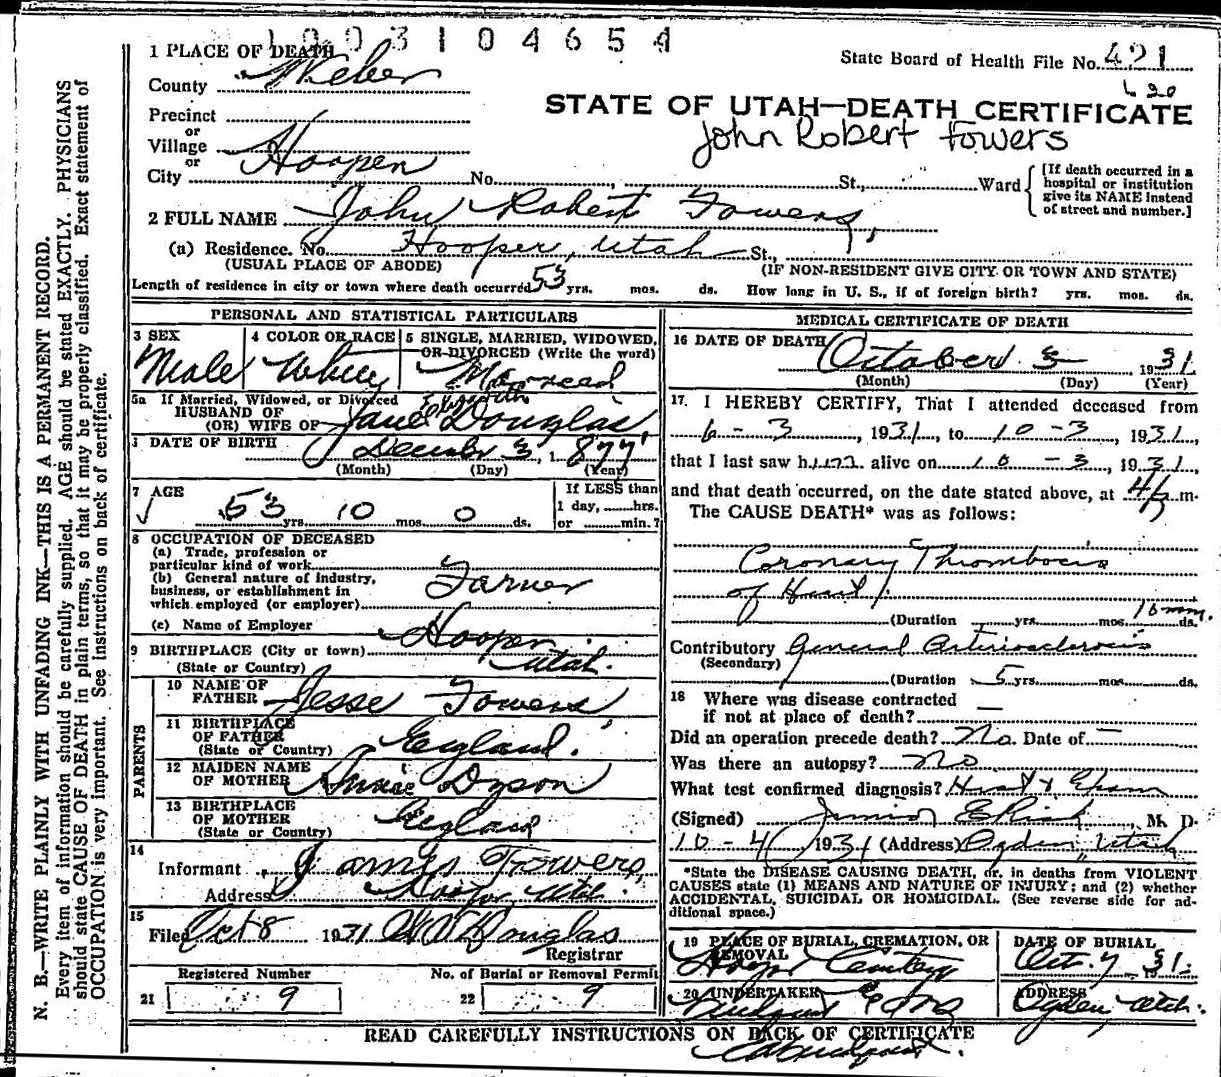 1003104654
1 PLACE OF DEATH
State Board of Health File No. 421
County Weber
620
Precinct
STATE OF UTAH—DEATH CERTIFICATE
or
John Robert Fowers
Village
Hooper
or
City No. St., Ward
[If death occurred in a
hospital or institution
give its NAME instead
of street and number.]
2 FULL NAME John Robert Fowers,
(a) Residence. No. Hooper, Utah St.,
(USUAL PLACE OF ABODE) (IF NON-RESIDENT GIVE CITY OR TOWN AND STATE)
Length of residence in city or town where death occurred 53 yrs. mos. ds. How long in U. S., if of foreign birth? yrs. mos. ds.
PERSONAL AND STATISTICAL PARTICULARS
3 SEX
Male
4 COLOR OR RACE
White
5 SINGLE, MARRIED, WIDOWED,
OR DIVORCED (Write the word)
Married
5a If Married, Widowed, or Divorced
Elizabeth
HUSBAND OF
(OR) WIFE OF Jane Douglas
DATE OF BIRTH December 3, 1877
(Month) (Day) (Year)
7 AGE
53 yrs. 10 mos. 0 ds.
If LESS than
1 day, hrs.
or min.?
8 OCCUPATION OF DECEASED
(a) Trade, profession or
particular kind of work
(b) General nature of industry,
business, or establishment in
which employed (or employer)
Farmer
(c) Name of Employer
9 BIRTHPLACE (City or town) Hooper
(State or Country) Utah.
PARENTS
10 NAME OF
FATHER Jesse Fowers
11 BIRTHPLACE
OF FATHER
(State or Country) England.
12 MAIDEN NAME
OF MOTHER Dyson
13 BIRTHPLACE
OF MOTHER
(State or Country) England
14
Informant James Fowers,
Address Hooper, Utah.
15
Filed Oct 8 1931 Douglas
Registrar
Registered Number
21 9
No. of Burial or Removal Permit
22 9
MEDICAL CERTIFICATE OF DEATH
16 DATE OF DEATH October 3 1931
(Month) (Day) (Year)
17. I HEREBY CERTIFY, That I attended deceased from
6-3, 1931, to 10-3, 1931,
that I last saw him alive on 10-3, 1931,
and that death occurred, on the date stated above, at m.
The CAUSE DEATH* was as follows:
Coronary Thrombosis
of Heart.
(Duration yrs. mos. ds.
Contributory General Arteriosclerosis
(Secondary)
(Duration 5 yrs. mos. ds.
18 Where was disease contracted
if not at place of death? —
Did an operation precede death? No. Date of —
Was there an autopsy? No
What test confirmed diagnosis?
(Signed) Junior M. D.
10-4 1931 (Address) Ogden, Utah
*State the DISEASE CAUSING DEATH, or, in deaths from VIOLENT
CAUSES state (1) MEANS AND NATURE OF INJURY; and (2) whether
ACCIDENTAL, SUICIDAL OR HOMICIDAL. (See reverse side for ad-
ditional space.)
19 PLACE OF BURIAL, CREMATION, OR
REMOVAL
Hooper Cemetery
DATE OF BURIAL
Oct. 7 1931.
20 UNDERTAKER
ADDRESS
Ogden Utah.
READ CAREFULLY INSTRUCTIONS ON BACK OF CERTIFICATE
N. B.—WRITE PLAINLY WITH UNFADING INK—THIS IS A PERMANENT RECORD.
Every item of information should be carefully supplied. AGE should be stated EXACTLY. PHYSICIANS
should state CAUSE OF DEATH in plain terms, so that it may be properly classified. Exact statement of
OCCUPATION is very important. See instructions on back of certificate.